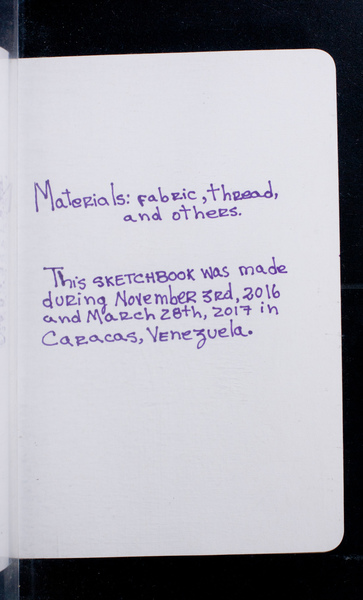 Materials: fabric, thread,
and others.
This SKETCHBOOK was made
during November 3rd, 2016
and March 28th, 2017 in
Caracas, Venezuela.